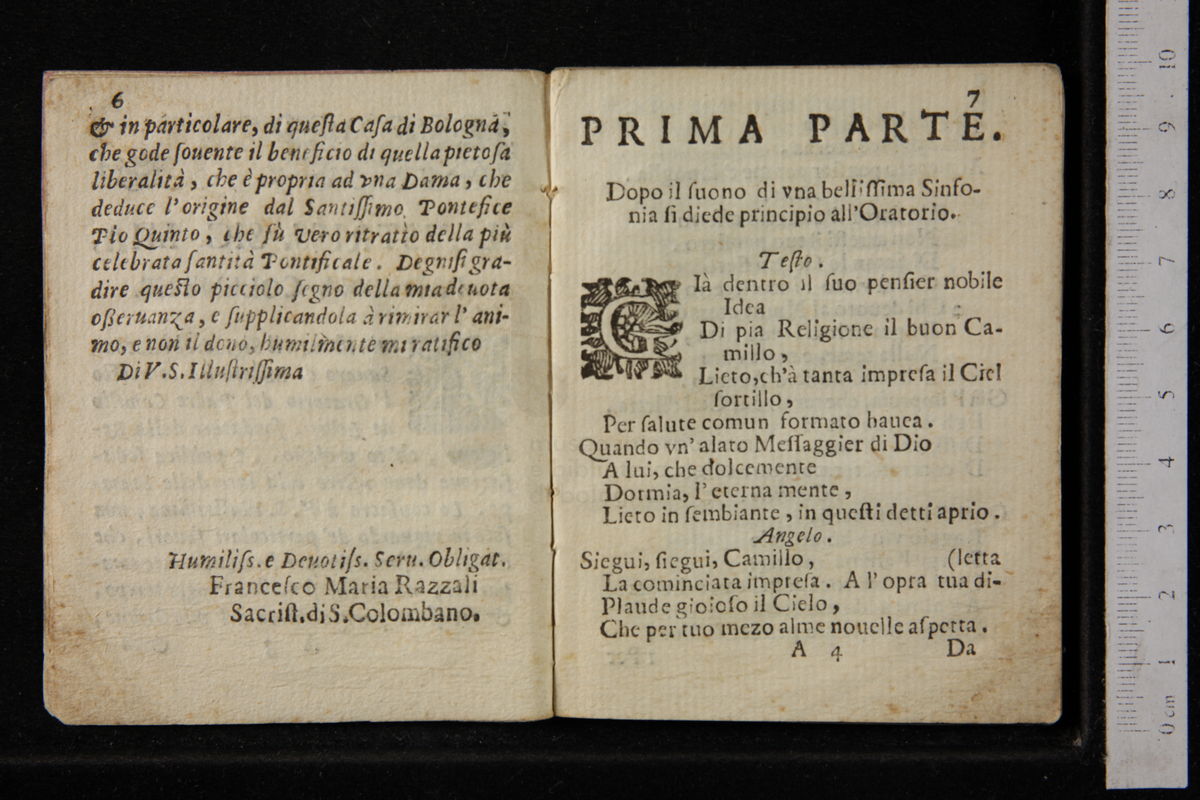 6
& in particolare, di questa Casa di Bologna,
che gode souente il beneficio di quella pietosa
liberalità, che è propria ad vna Dama, che
deduce l'origine dal Santissimo Pontefice
Pio Quinto, che fù vero ritratto della più
celebrata santità Pontificale. Degnisi gra-
dire questo picciolo segno della mia deuota
osseruanza, e supplicandola à rimirar l'ani-
mo, e non il dono, humilmente mi ratifico
Di V.S. Illustrissima
Humiliss. e Deuotiss. Seru. Obligat.
Francesco Maria Razzali
Sacrist. di S. Colombano.
7
PRIMA PARTE.
Dopo il suono di vna bellissima Sinfo-
nia si diede principio all'Oratorio.
Testo.
GIà dentro il suo pensier nobile
Idea
Di pia Religione il buon Ca-
millo,
Lieto, ch'à tanta impresa il Ciel
sortillo,
Per salute comun formato hauea.
Quando vn' alato Messaggier di Dio
A lui, che dolcemente
Dormia, l'eterna mente,
Lieto in sembiante, in questi detti aprio.
Angelo.
Siegui, siegui, Camillo, (letta
La cominciata impresa. A l'opra tua di-
Plaude gioioso il Cielo,
Che per tuo mezo alme nouelle aspetta.
A 4 Da
0 cm 1 2 3 4 5 6 7 8 9 10